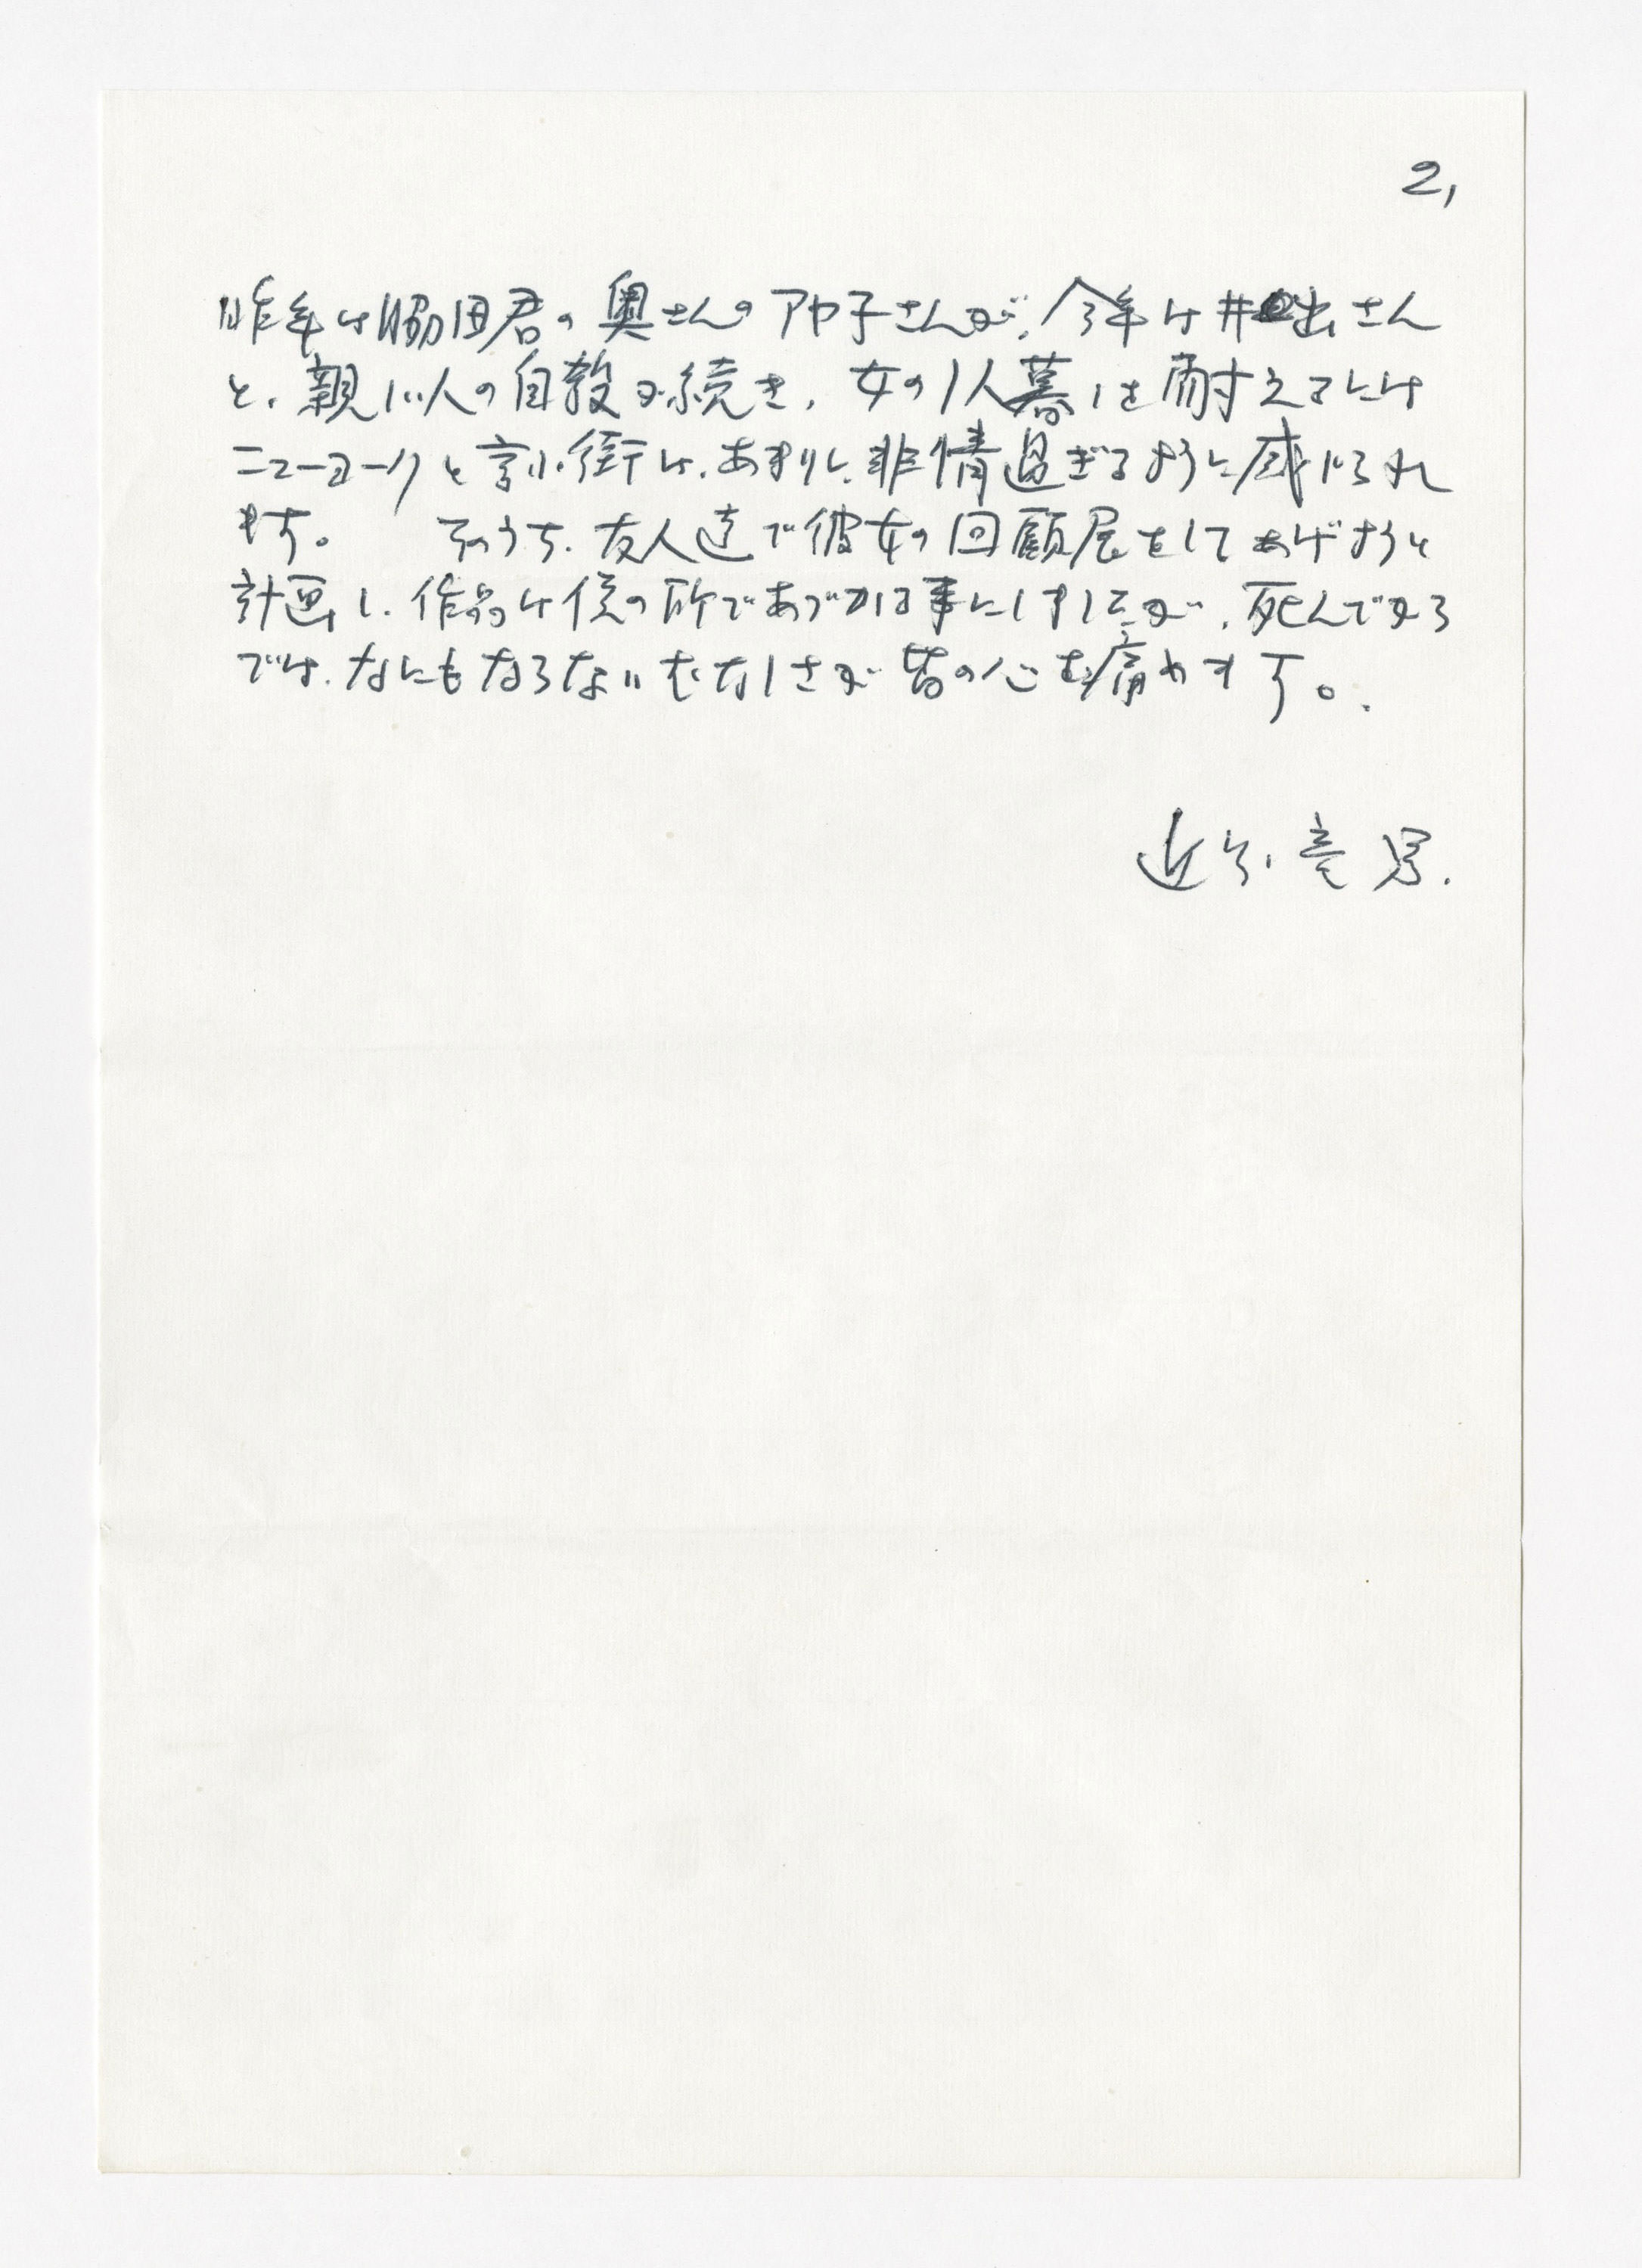 2,
昨年は脇田君の奥さんのアヤ子さんが、今年は井出さん
と、親しい人の自殺が続き、女の1人暮しを耐えるには
ニューヨークと言ふ街は、あまりに非情過ぎるように感じられ
ます。 そのうち、友人達で彼女の回顧展をしてあげようと
計画し、作品は僕の所であづかる事にしましたが、死んでから
では、なにもならないむなしさが皆の心を痛めます。
近